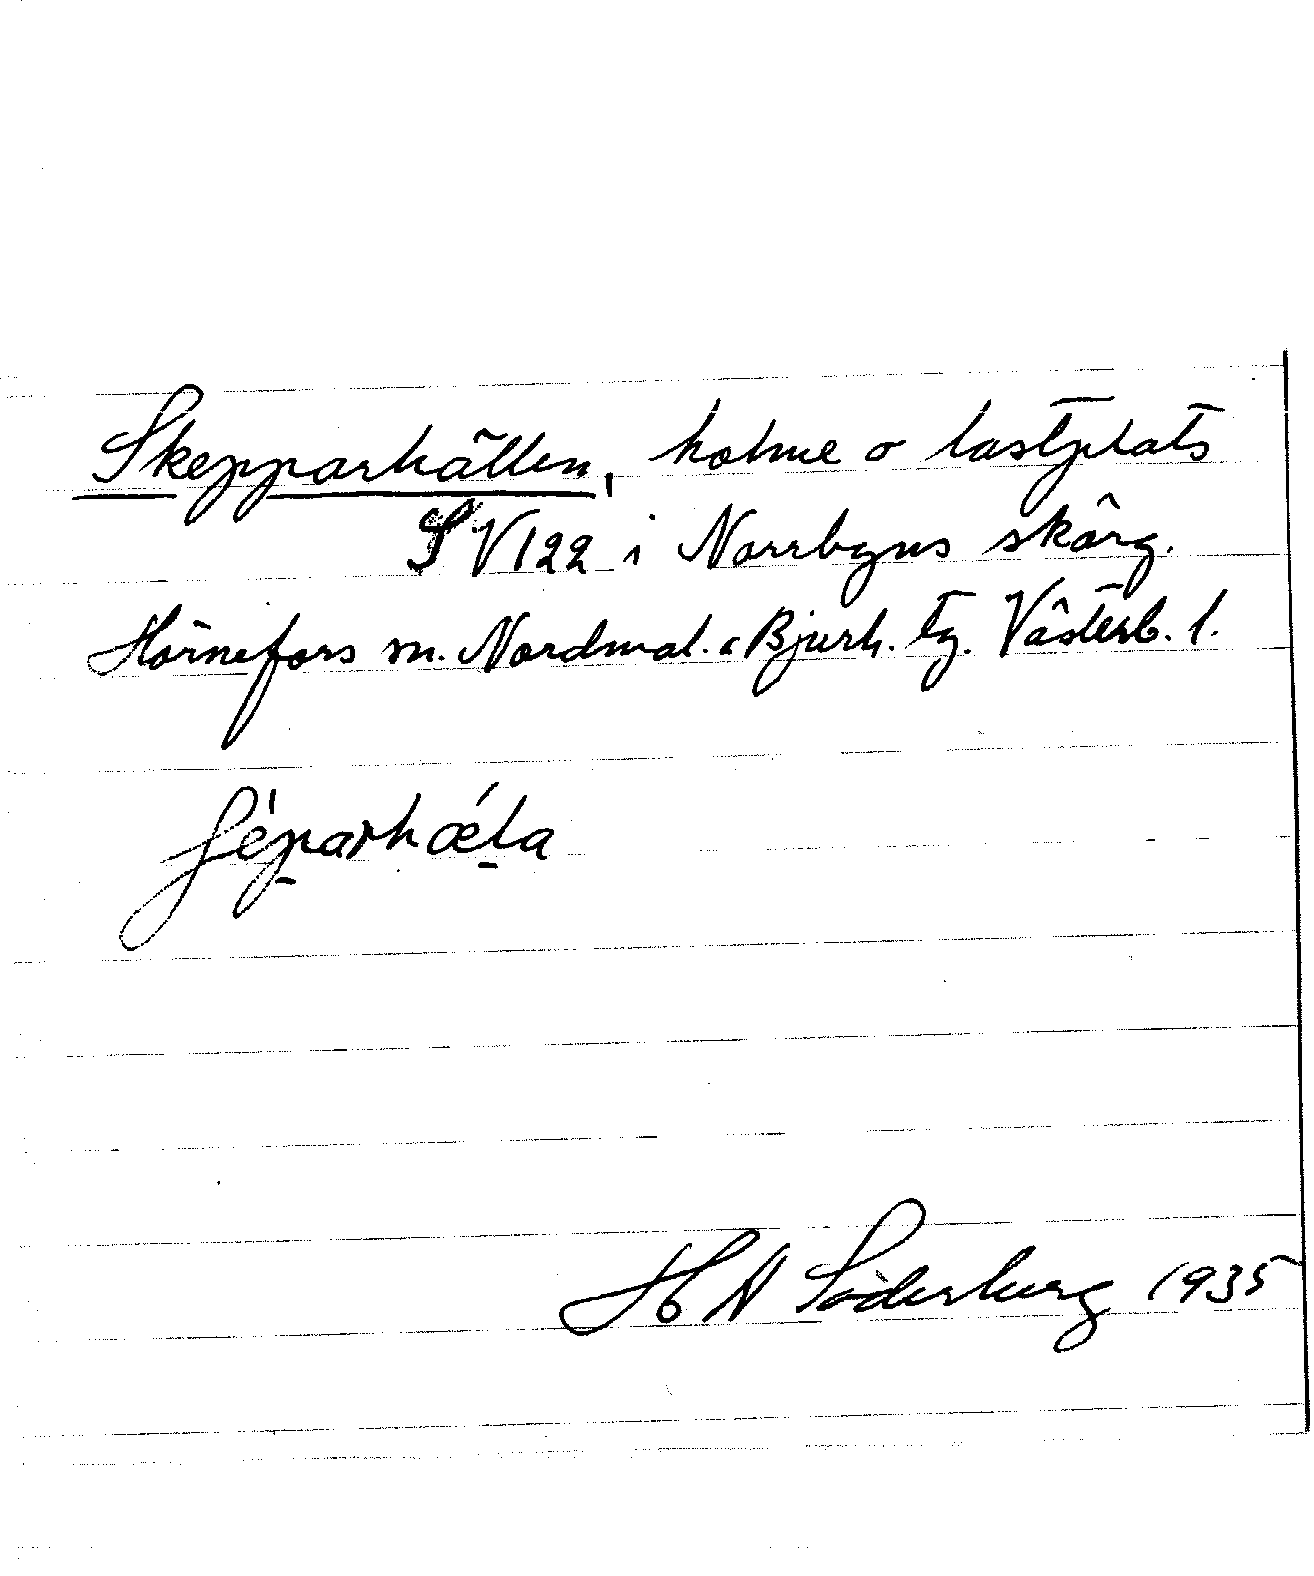 Skepparhällen, holme o lastplats
SV 122 i Norrbyns skärg.
Hörnefors sn. Nordmal. o Bjurh. tg. Västerb. l.
ʃép̱arhǽḻa
H A Söderberg 1935